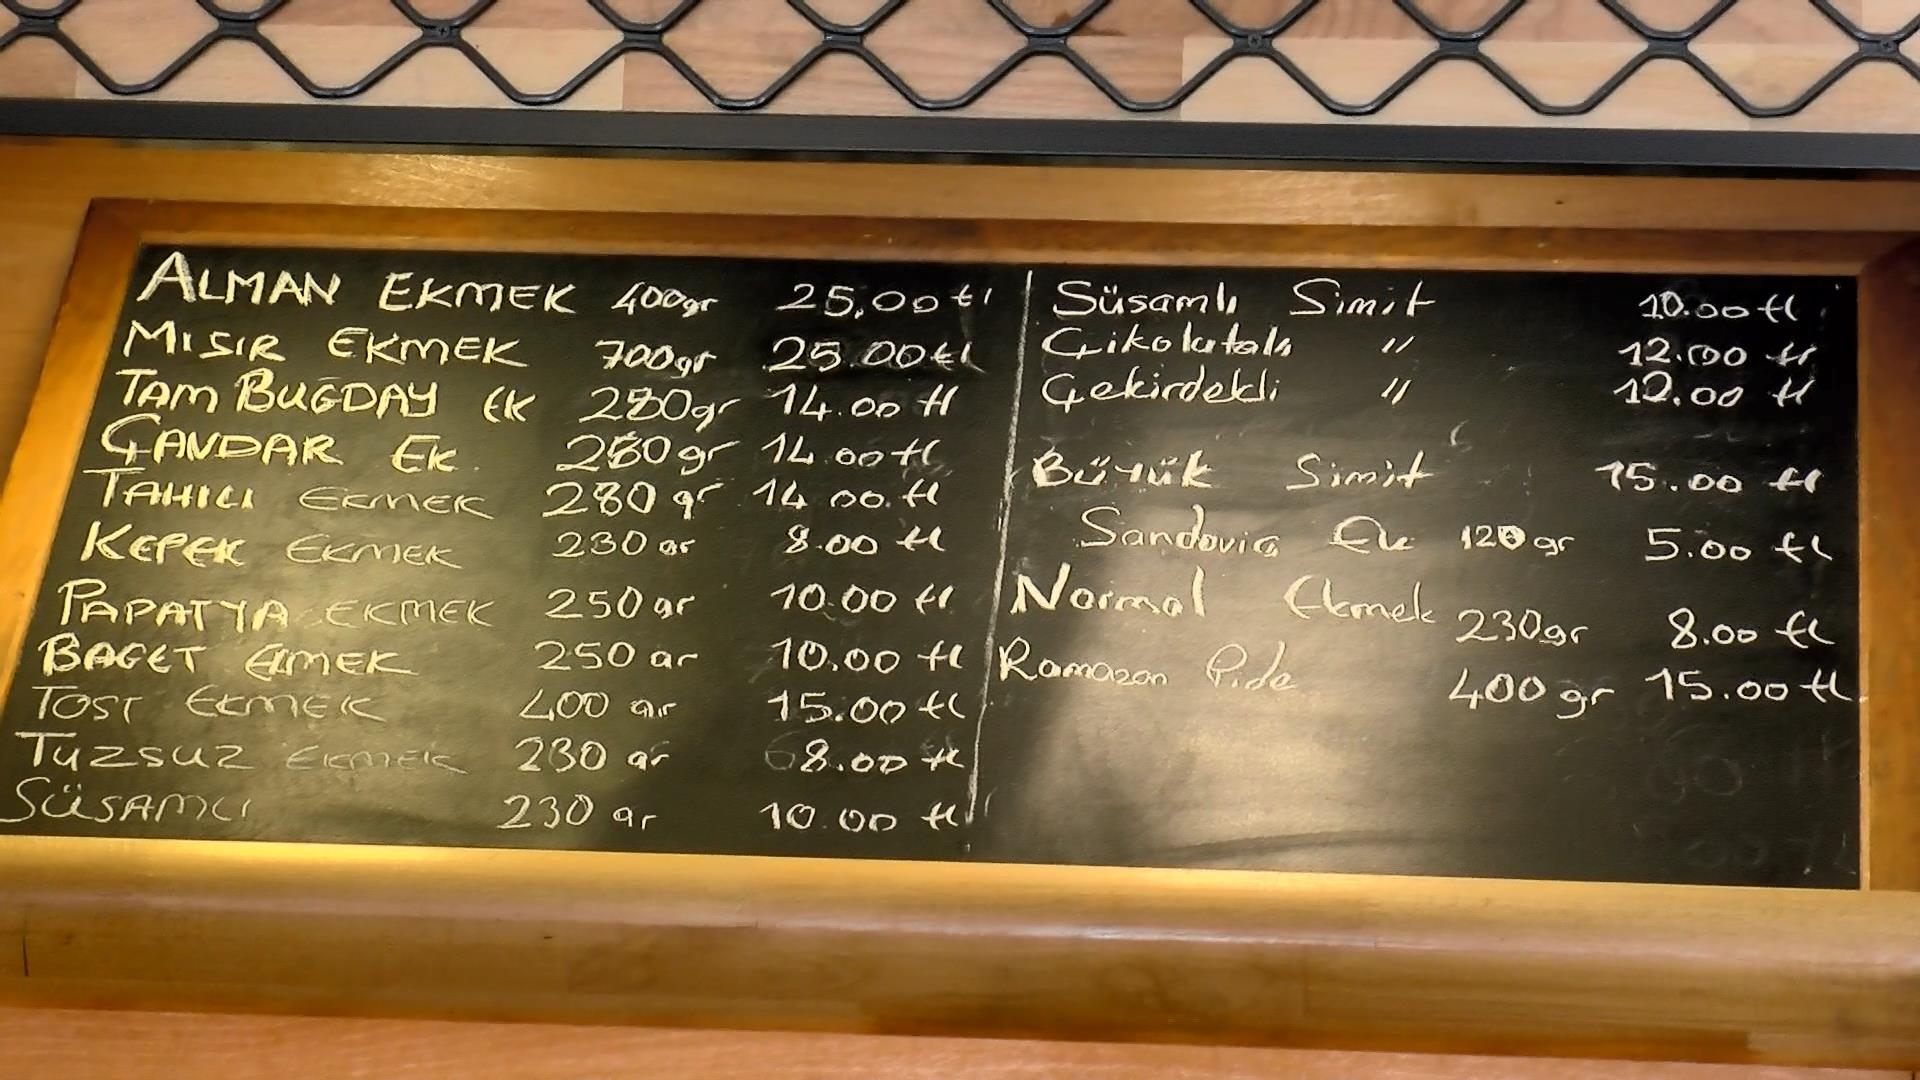 ALMAN EKMEK 400gr 25.00 tl
MISIR EKMEK 700gr 25.00 tl
TAM BUĞDAY EK 280gr 14.00 tl
ÇAVDAR EK. 280gr 14.00 tl
TAHILI EKMEK 280 gr 14.00 tl
KEPEK EKMEK 230 gr 8.00 tl
PAPATYA EKMEK 250 gr 10.00 tl
BAGET EKMEK 250 gr 10.00 tl
TOST EKMEK 400 gr 15.00 tl
TUZSUZ EKMEK 230 gr 8.00 tl
SÜSAMLI 230 gr 10.00 tl
Süsamlı Simit 10.00 tl
Çikolatalı " 12.00 tl
Çekirdekli " 12.00 tl
Büyük Simit 15.00 tl
Sandoviç Ek 120 gr 5.00 tl
Normal Ekmek 230gr 8.00 tl
Ramazan Pide 400 gr 15.00 tl